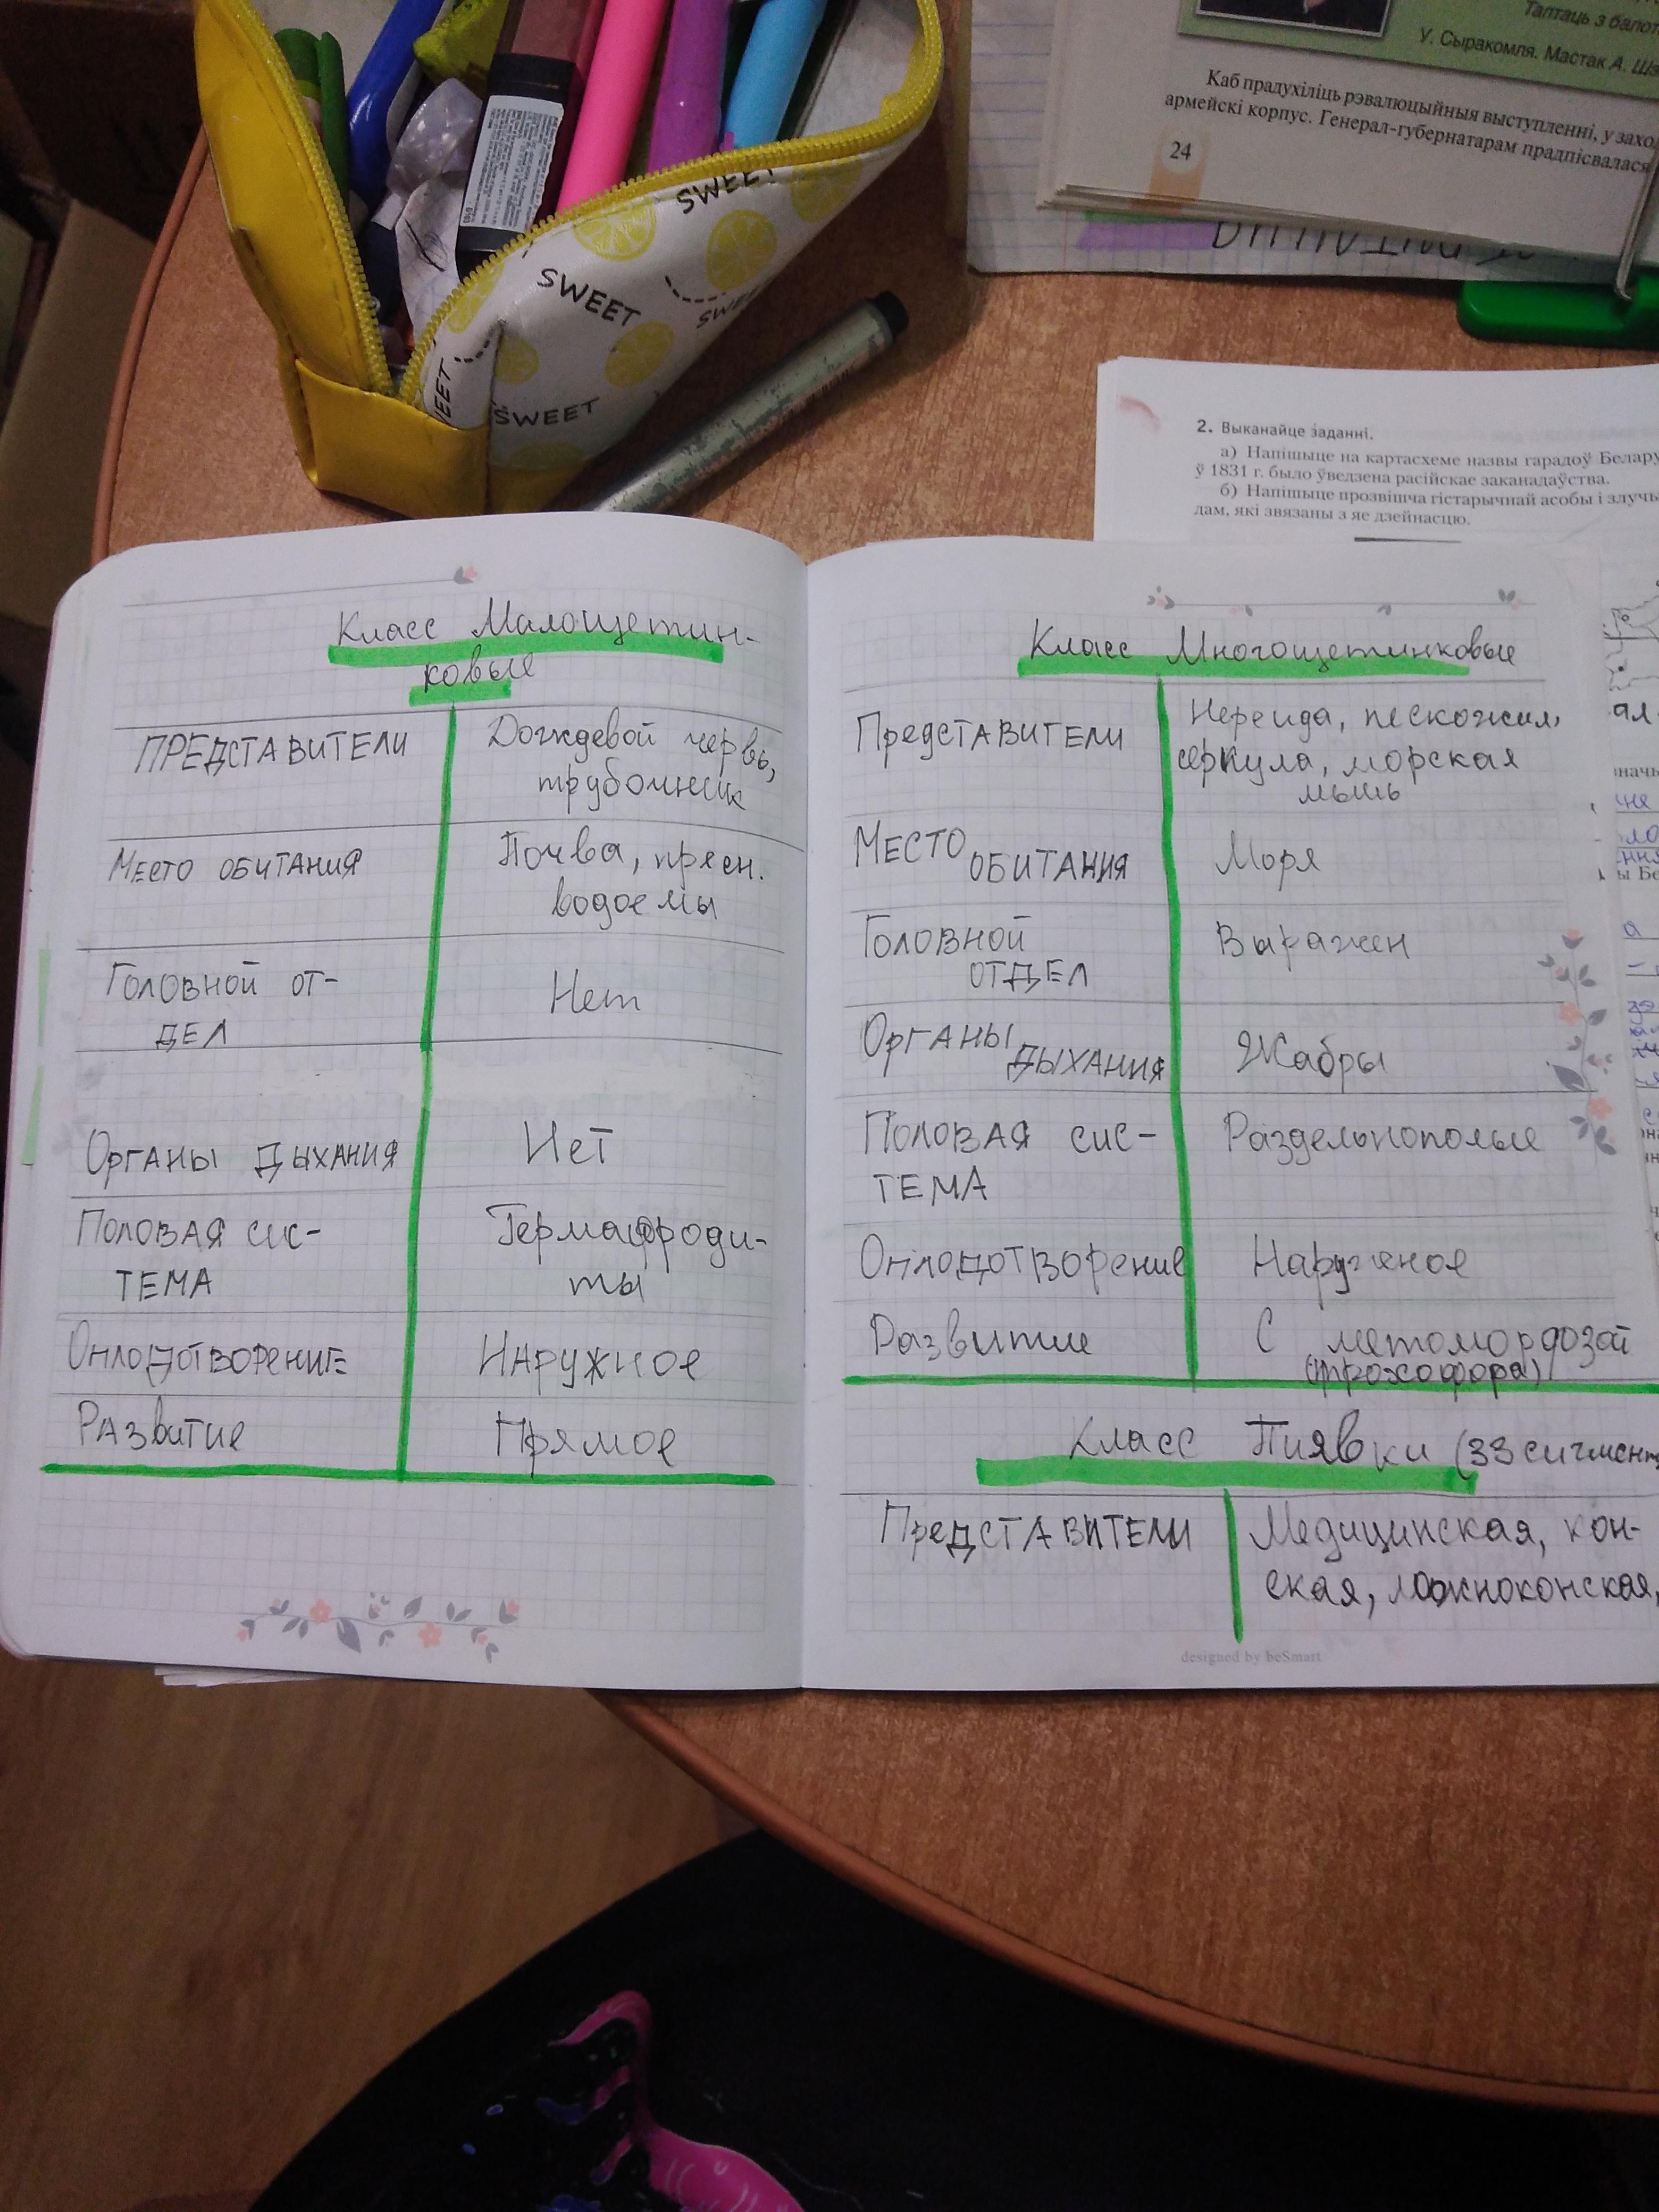 Талтаць з
У. Сыракомля. Мастак А.
Каб прадухіліць рэвалюцыйныя выступленні, у
армейскі корпус. Генерал-губернатарам прадпісвалася
24
SWEET
SWEET
SWEET
2. Выканайце заданні.
а) Напішыце на картасхеме назвы гарадоў
ў 1831 г. было ўведзена расійскае заканадаўства.
б) Напішыце прозвішча гістарычнай асобы і
дам, які звязаны з яе дзейнасцю.
Класс Малощетин-
ковые
ПРЕДСТАВИТЕЛИ
Дождевой червь,
трубочник
МЕСТО ОБИТАНИЯ
Почва, пресн.
водоемы
ГОЛОВНОЙ ОТ-
ДЕЛ
Нет
ОРГАНЫ ДЫХАНИЯ
Нет
ПОЛОВАЯ СИС-
ТЕМА
Гермафроди-
ты
ОПЛОДОТВОРЕНИЕ
Наружное
Развитие
Прямое
Класс Многощетинковые
ПредСТАВИТЕЛИ
Нереида, пескожил,
серпула, морская
мышь
МЕСТО ОБИТАНИЯ
Моря
ГОЛОВНОЙ
ОТДЕЛ
Выражен
ОРГАНЫ ДЫХАНИЯ
Жабры
ПОЛОВАЯ СИС-
ТЕМА
Раздельнополые
Оплодотворение
Наружное
Развитие
С метоморфозой
(трохофора)
Класс Пиявки (33
ПредСТАВИТЕЛИ
Медицинская, кон-
ская, ложноконская,
designed by beSmart